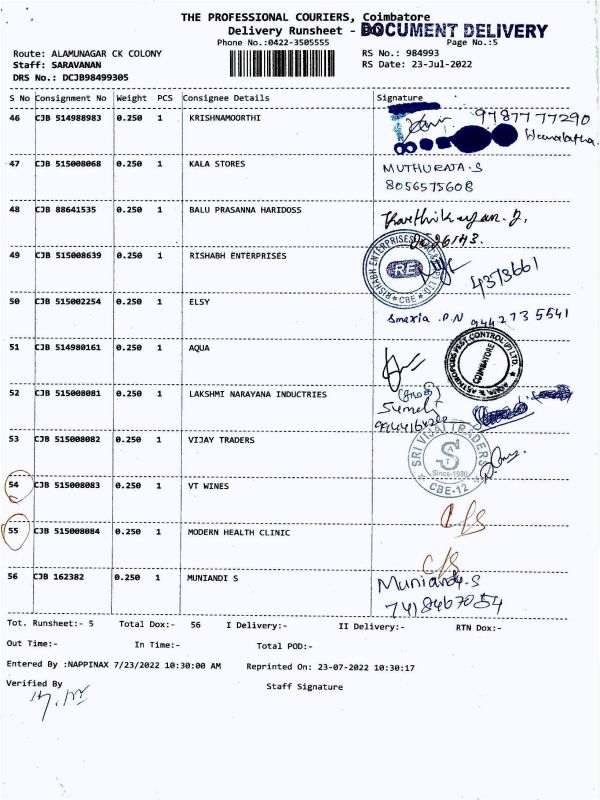 THE PROFESSIONAL COURIERS, Coimbatore
Delivery Runsheet - DOCUMENT DELIVERY
Phone No.:0422-3505555
Page No.:5
Route: ALAMUNAGAR CK COLONY
RS No.: 984993
Staff: SARAVANAN
RS Date: 23-Jul-2022
DRS No.: DCJB98499305
S No Consignment No Weight PCS Consignee Details Signature
46 CJB 514988983 0.250 1 KRISHNAMOORTHI
9787777290
Hemalatha.
47 CJB 515008068 0.250 1 KALA STORES
MUTHURAJA.S
8056575608
48 CJB 88641535 0.250 1 BALU PRASANNA HARIDOSS
Karthikeyan.J,
49 CJB 515008639 0.250 1 RISHABH ENTERPRISES
RISHABH ENTERPRISES
RE
CBE
4373661
50 CJB 515002254 0.250 1 ELSY
P.N 9442735541
51 CJB 514980161 0.250 1 AQUA
PEST CONTROL (P) LTD.
COIMBATORE
52 CJB 515008081 0.250 1 LAKSHMI NARAYANA INDUCTRIES
53 CJB 515008082 0.250 1 VIJAY TRADERS
SRI VIJAY TRADERS
Since-1980
CBE-12
54 CJB 515008083 0.250 1 VT WINES
C/S
55 CJB 515008084 0.250 1 MODERN HEALTH CLINIC
C/S
56 CJB 162382 0.250 1 MUNIANDI S
Muniandi.S
7418467054
Tot. Runsheet:- 5 Total Dox:- 56 I Delivery:- II Delivery:- RTN Dox:-
Out Time:- In Time:- Total POD:-
Entered By :NAPPINAX 7/23/2022 10:30:00 AM Reprinted On: 23-07-2022 10:30:17
Verified By
Staff Signature